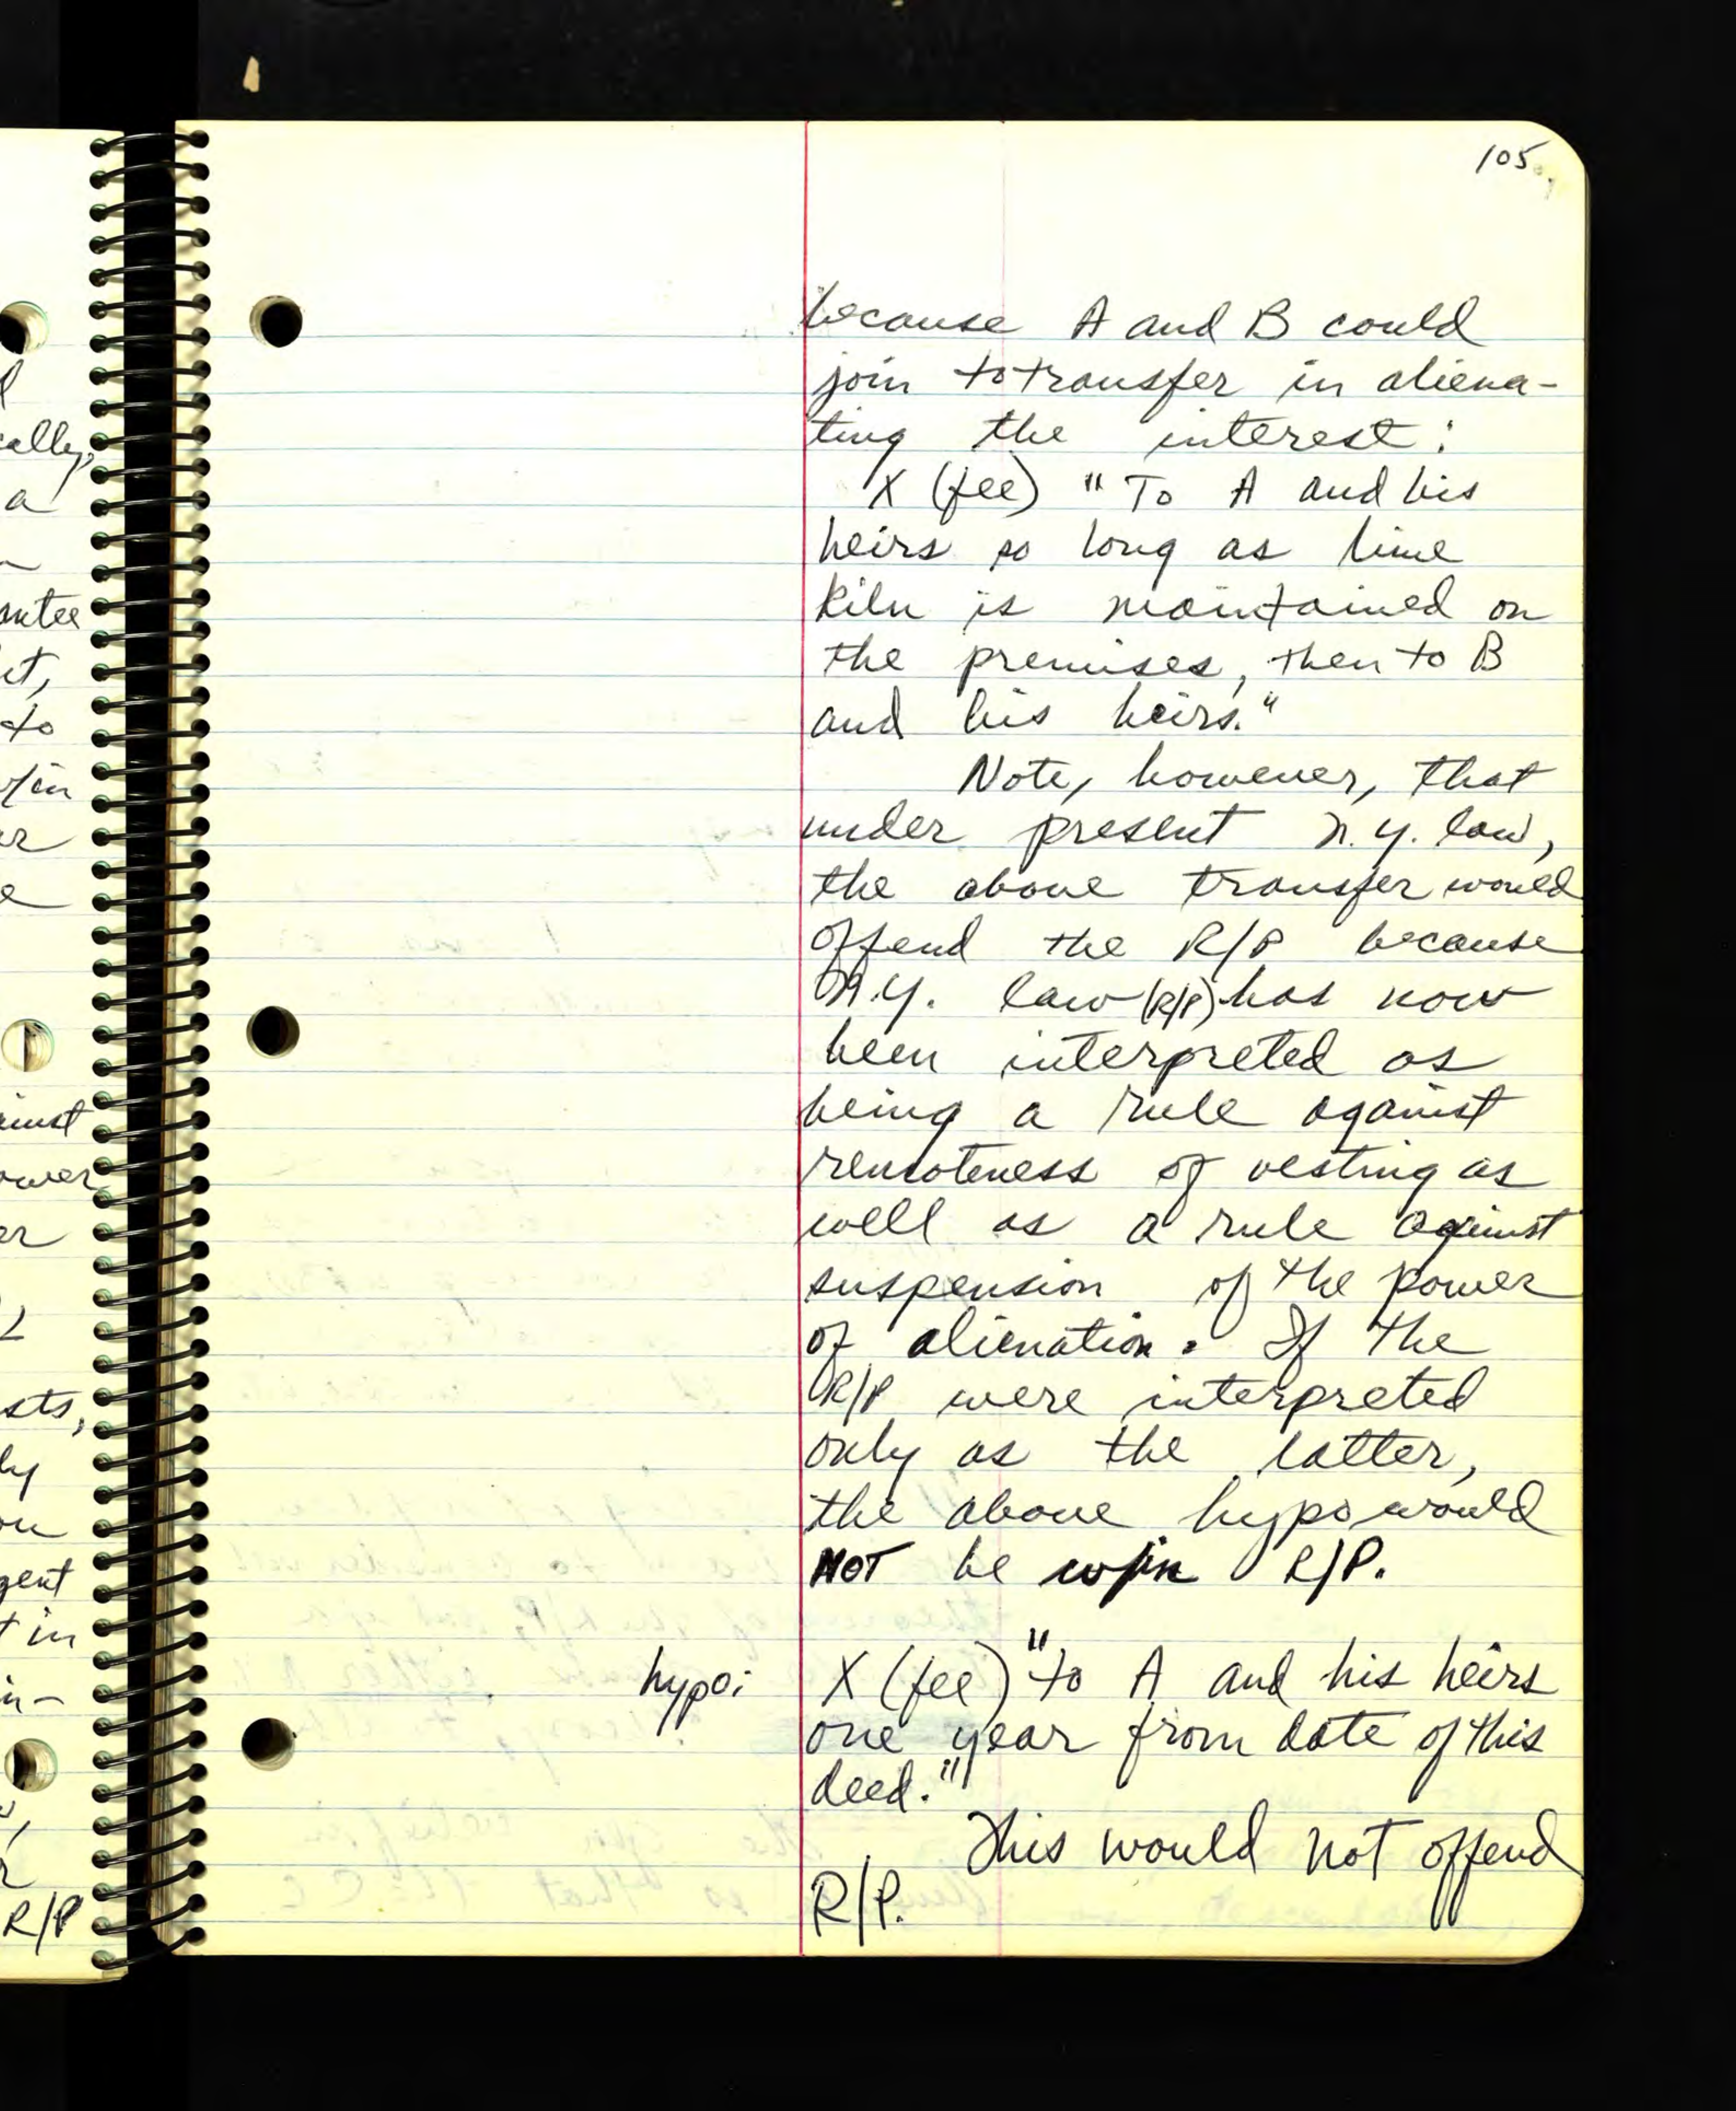 105.
because A and B could
join to transfer in aliena-
ting the interest:
X (fee) "To A and his
heirs so long as lime
kiln is maintained on
the premises, then to B
and his heirs."
Note, however, that
under present N.Y. law,
the above transfer would
offend the R/P because
N.Y. law (R/P) has now
been interpreted as
being a rule against
remoteness of vesting as
well as a rule against
suspension of the power
of alienation. If the
R/P were interpreted
only as the latter,
the above hypo would
NOT be w/in R/P.
hypo: X (fee) "to A and his heirs
one year from date of this
deed."
This would not offend
R/P.
ally,
a
to
w/in
R/P